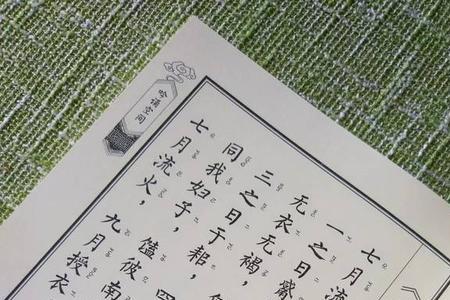 吟诵空间
七月流
一之日觱
无衣无褐，
三之日于耜，四
同我妇子，馌彼南
七月流火，九月授衣